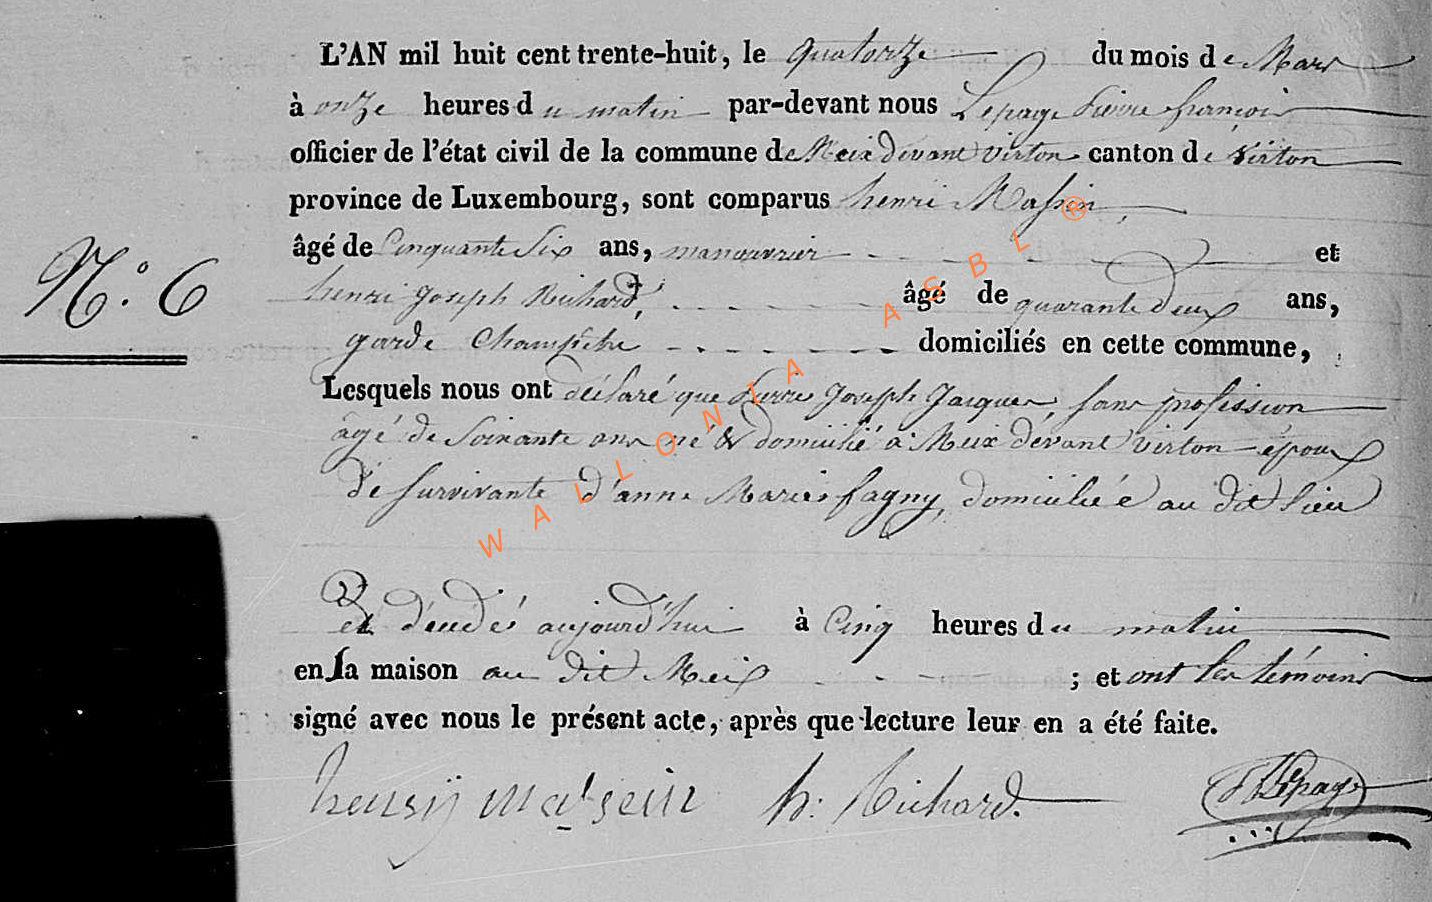 L'AN mil huit cent trente-huit, le quatorze du mois de Mars
à onze heures du matin par-devant nous Lepage Pierre françois
officier de l'état civil de la commune de Meix devant virton canton de virton
province de Luxembourg, sont comparus henri Massin,
âgé de Cinquante Six ans, manouvrier et
N.° 6
henri Joseph Richard, âgé de quarante deux ans,
garde Champêtre domiciliés en cette commune,
Lesquels nous ont déclaré que Pierre Joseph Jacques, sans profession
âgé de Soixante ans né & domicilié à Meix devant virton époux
de survivante d'anne Marie fagny, domiciliée au dit lieu
Est décédé aujourd'hui à Cinq heures du matin
en sa maison au dit Meix ; et ont les témoins
signé avec nous le présent acte, après que lecture leur en a été faite.
henrij massein h: Richard. Lepage
WALLONIA ASBL ®